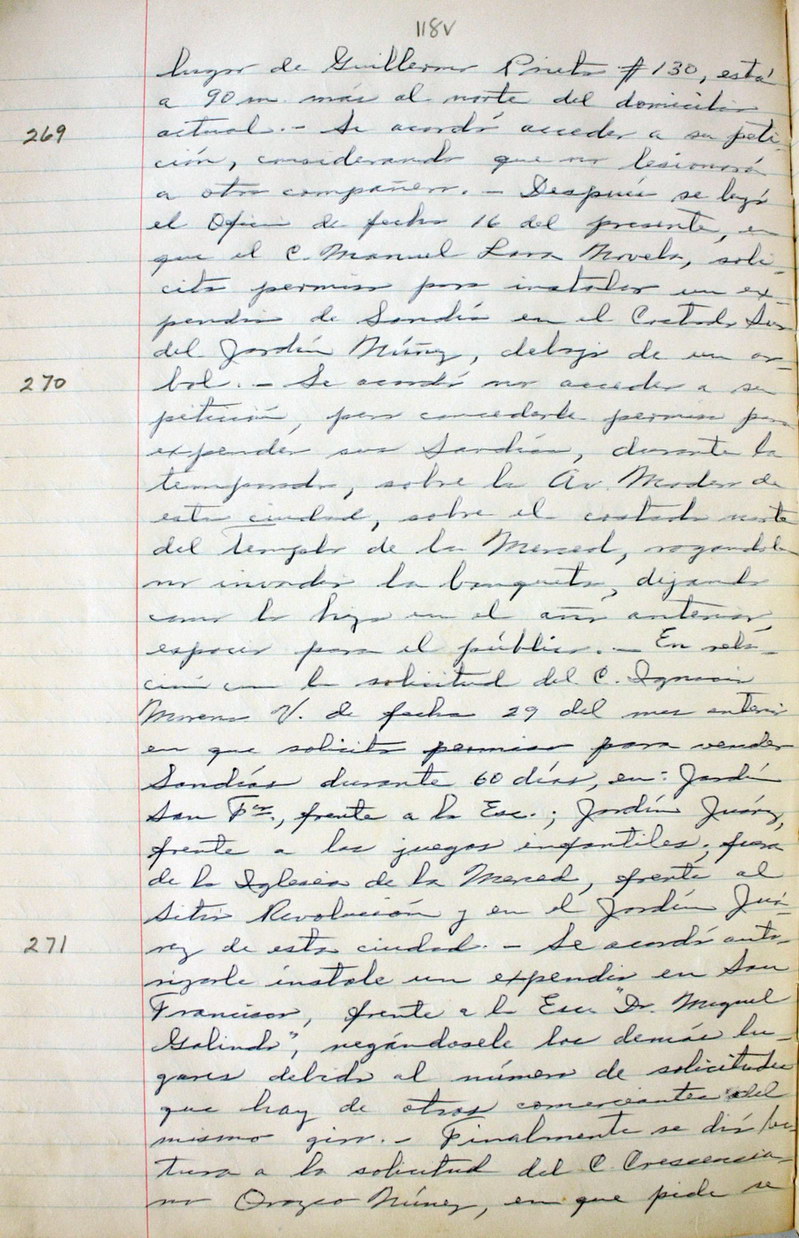 118V
lugar de Guillermo Prieto #130, está
a 90 m. más al norte del domicilio
269 actual.- Se acordó acceder a su peti-
ción, considerando que no lesionará
a otro compañero. - Después se leyó
el Oficio de fecha 16 del presente, en
que el C. Manuel Lara Novela, soli-
cita permiso para instalar un ex-
pendio de Sandía en el Costado Sur
del Jardín Núñez, debajo de un ar-
270 bol. - Se acordó no acceder a su
petición, pero concederle permiso para
expender sus Sandías, durante la
temporada, sobre la Av. Madero de
esta ciudad, sobre el costado norte
del Templo de la Merced, rogandole
no invadir la banqueta, dejando
como lo hizo en el año anterior,
espacio para el público. - En rela-
ción con la solicitud del C. Ignacio
Moreno V. de fecha 29 del mes anterior
en que solicita permiso para vender
Sandías durante 60 días, en: Jardín
San Fco., frente a la Esc.; Jardín Juárez,
frente a los juegos infantiles; fuera
de la Iglesia de la Merced, frente al
Sitio Revolución y en el Jardín Juá-
271 rez de esta ciudad. - Se acordó auto-
rizarle instale un expendio en San
Francisco, frente a la Esc. "Dr. Miguel
Galindo", negándosele los demás lu-
gares debido al número de solicitudes
que hay de otros comerciantes del
mismo giro. - Finalmente se dió lec-
tura a la solicitud del C. Crescencia-
no Orozco Núñez, en que pide se